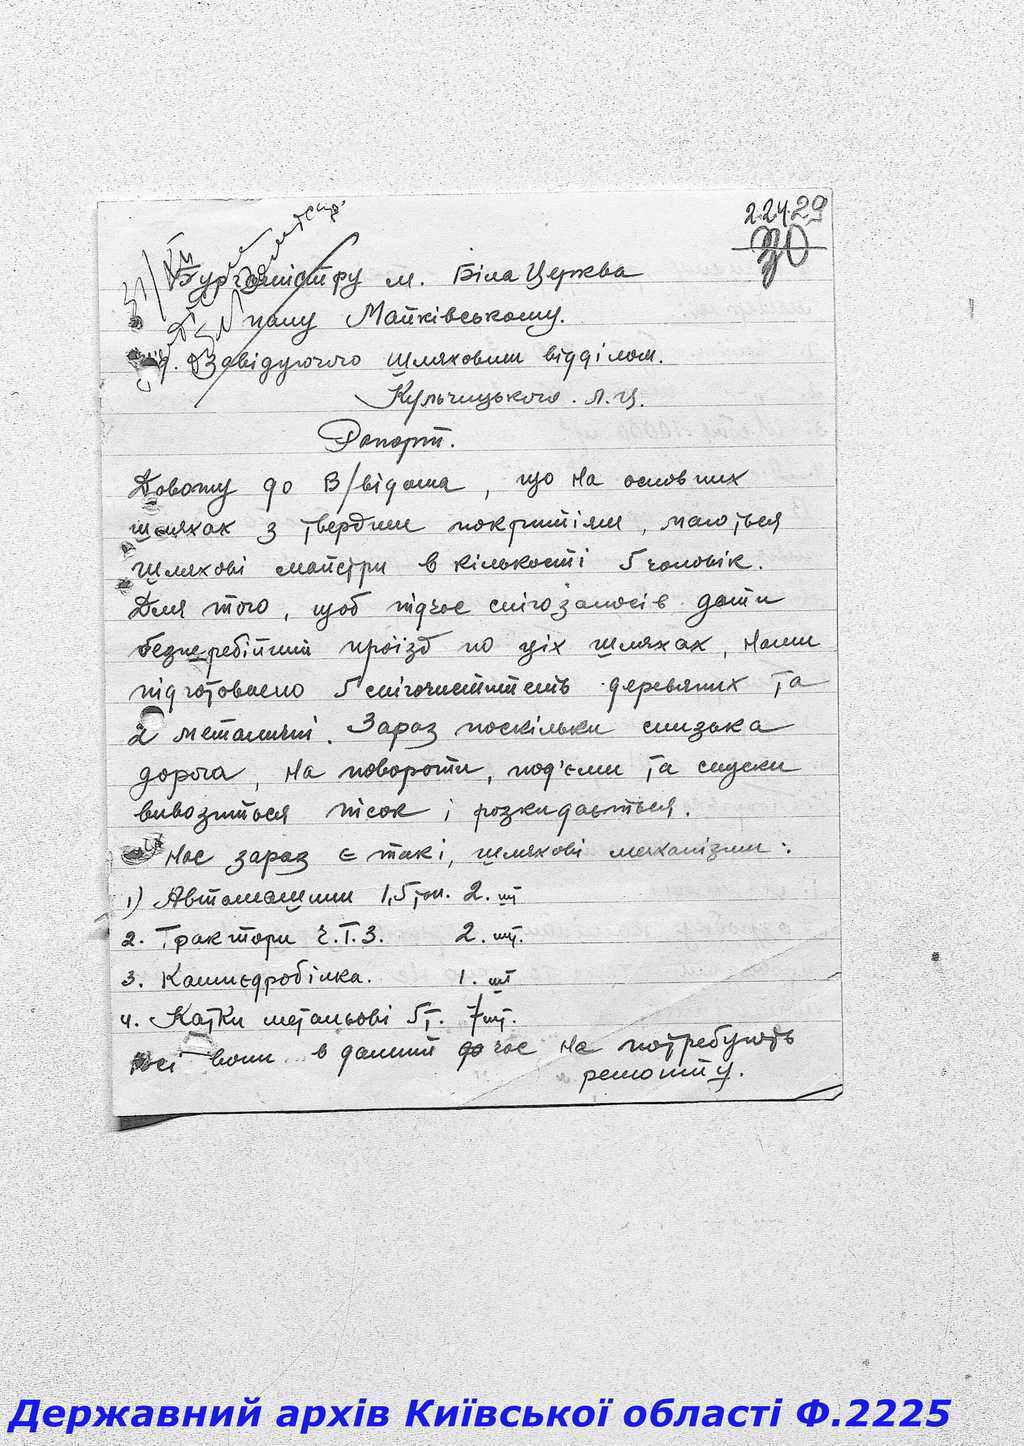 2.24.29
30
31/XII
Бургомістру м. Біла Церква
пану Майківському.
Завідуючого шляховим відділом.
Кульчицького. Л.Ц.
Рапорт.
Довожу до В/відома, що на основних
шляхах з твердим покриттям, маються
шляхові майстри в кількості 5 чоловік.
Для того, щоб підчас снігозаносів дати
безперебійний проїзд по ціх шляхах, нами
підготовлено 5 снігочистителів деревяних та
2 металичні. Зараз поскільки слизька
дорога, на повороти, под'єми та спуски
вивозиться пісок і розкидається.
Нас зараз є такі, шляхові механізми:
1) Автомашини 1,5 тон. 2. шт
2. Трактори Ч.Т.З. 2. шт.
3. Камнєдробілка. 1. шт
4. Катки метальові 5т. 7 шт.
Всі вони в данний час не потребують
ремонту.
Державний архів Київської області Ф.2225